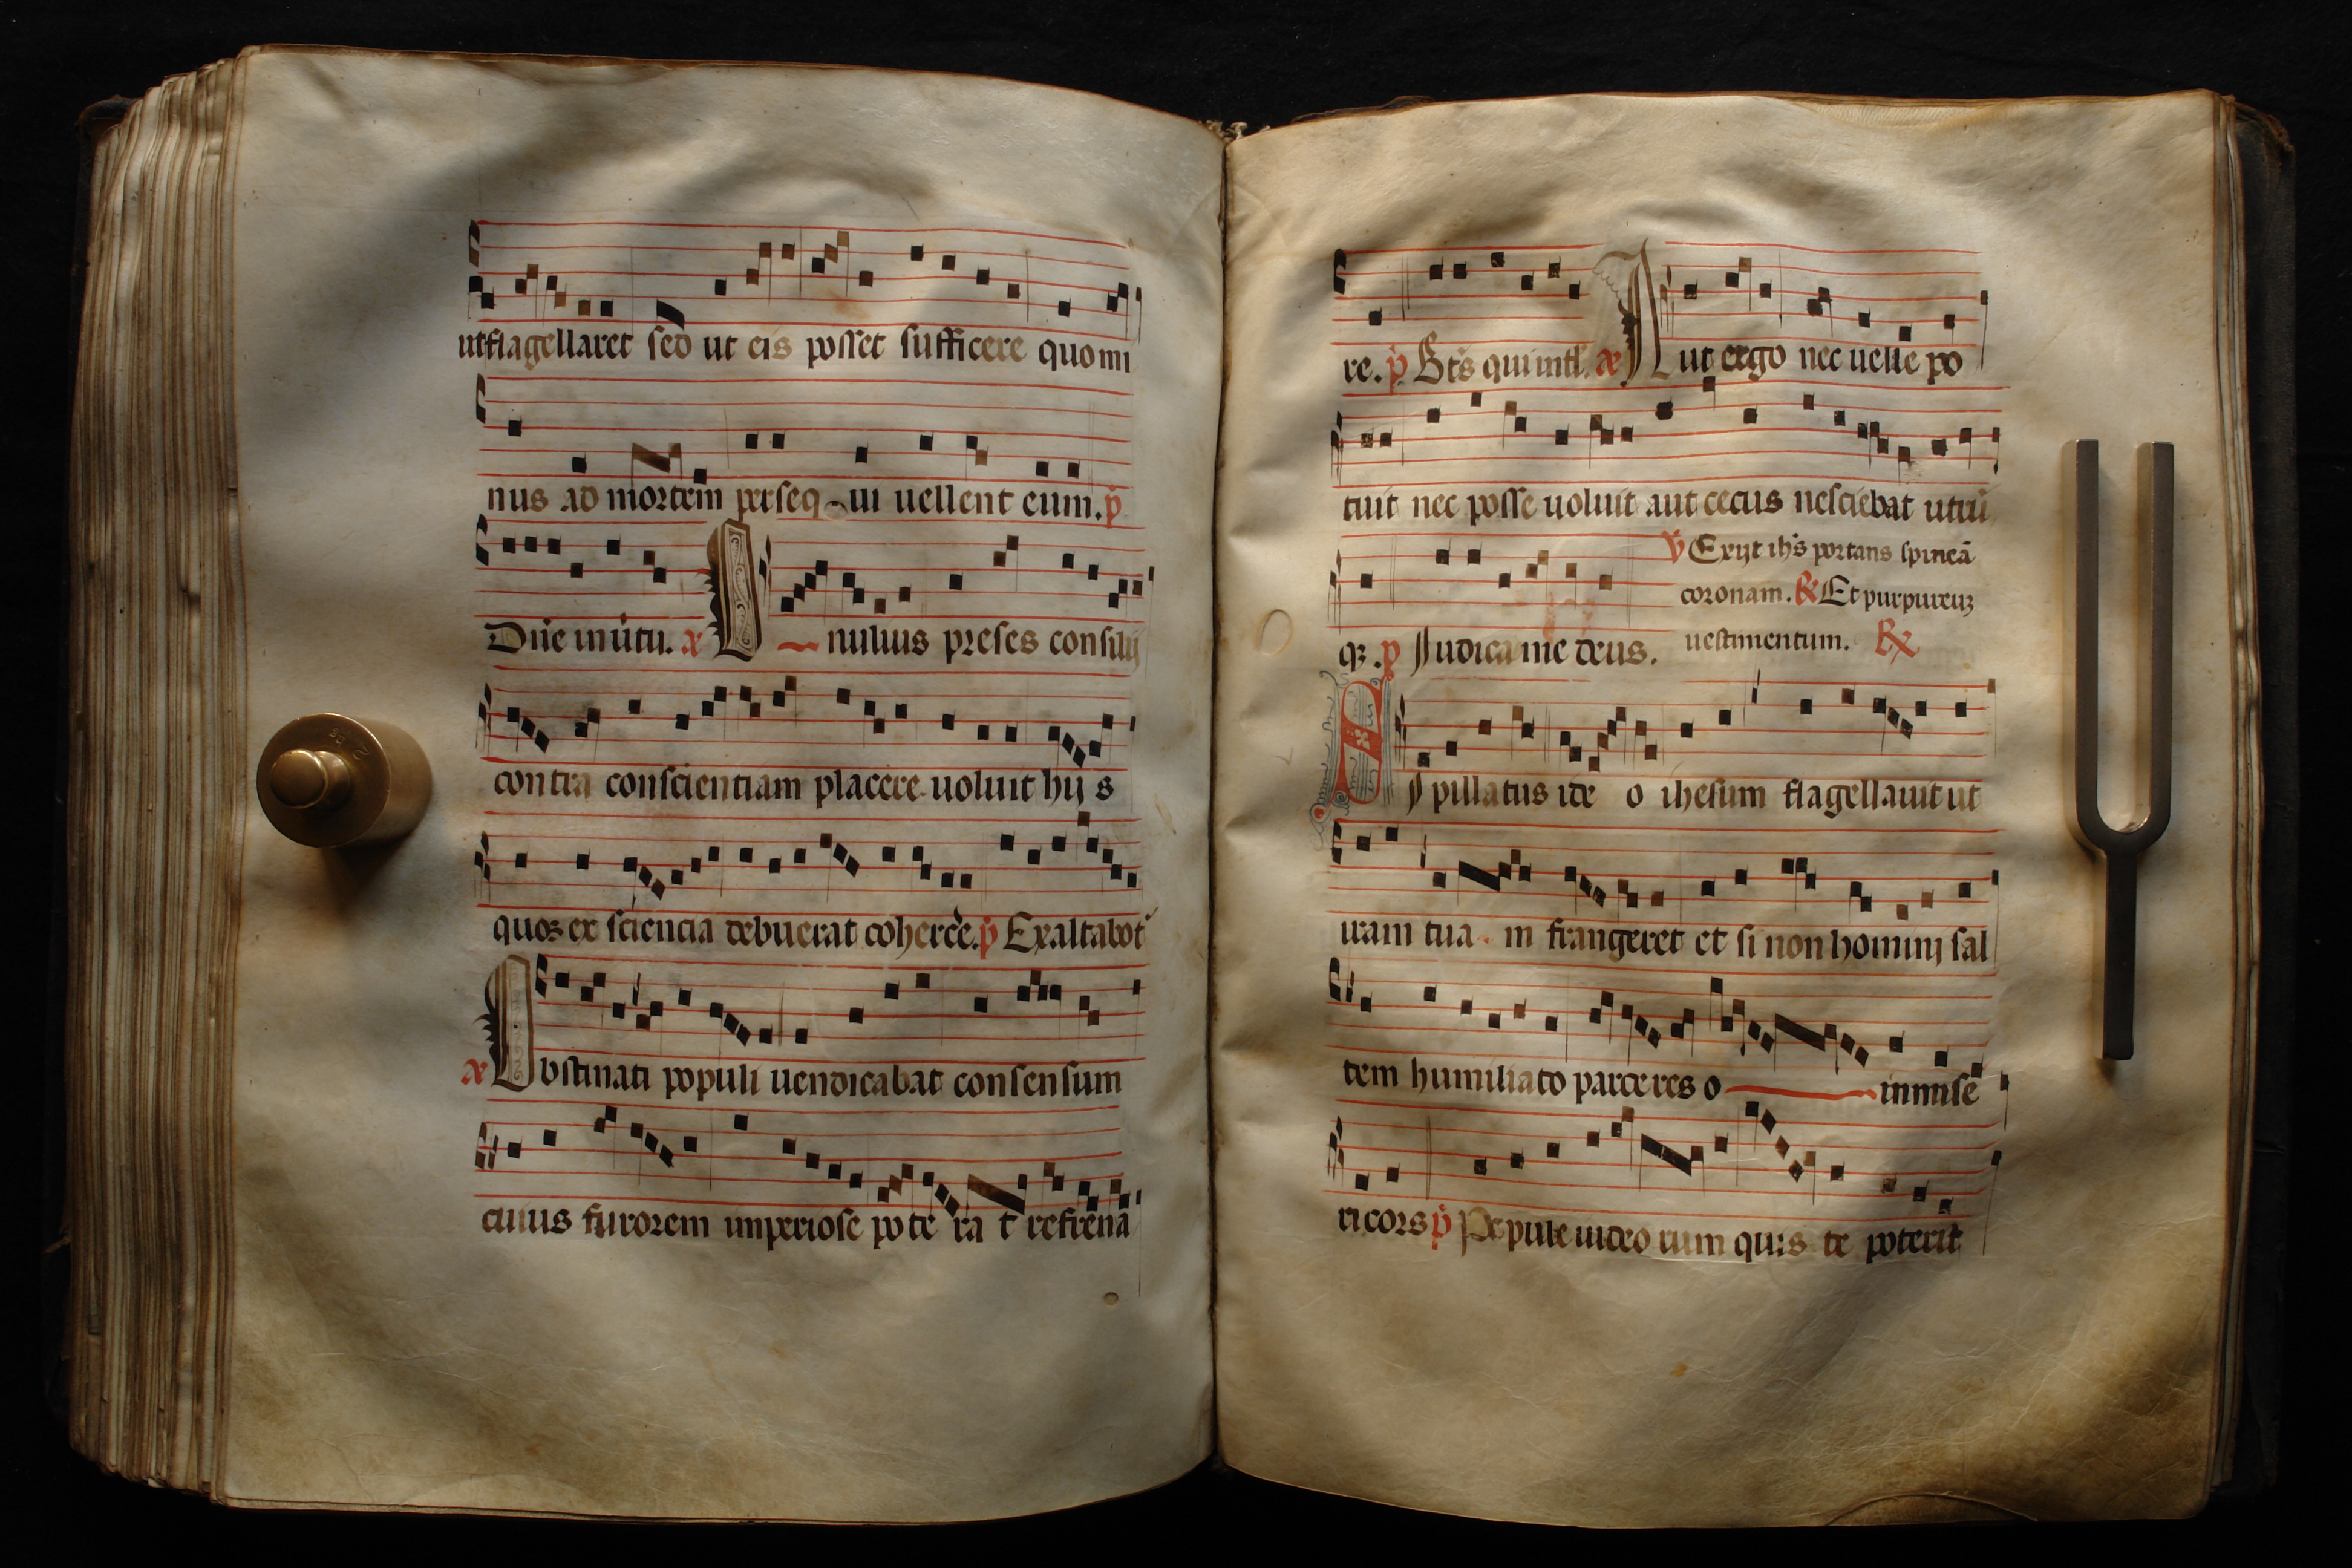 utflagellaret sed ut eis posset sufficere quo mi
nus ad mortem perseq ui uellent eum. p̄
Dn̄e in ūtu. a᷒
nuluus preses consilij
contra conscientiam placere uoluit hijs
quos ex sciencia debuerat coherc̄e. p̄ Exaltabo t
a᷒ Obstinati populi uendicabat consensum
cuius furorem imperiose pote ra t refrena
re. p̄ qui intl̄. a᷒ Aut ergo nec uelle po
tuit nec posse uoluit aut cecus nesciebat utrū
qȝ. p̄ Iudica me deus.
℣ Exijt ih̄s portans spineā
coronam. ℟ Et purpureuȝ
uestimentum. ℟
pillatus ide o ihesum flagellauit ut
iram tua m frangeret et si non homini sal
tem humiliato parceres o inmise
ricors p̄ Popule iudeo rum quis te poterit